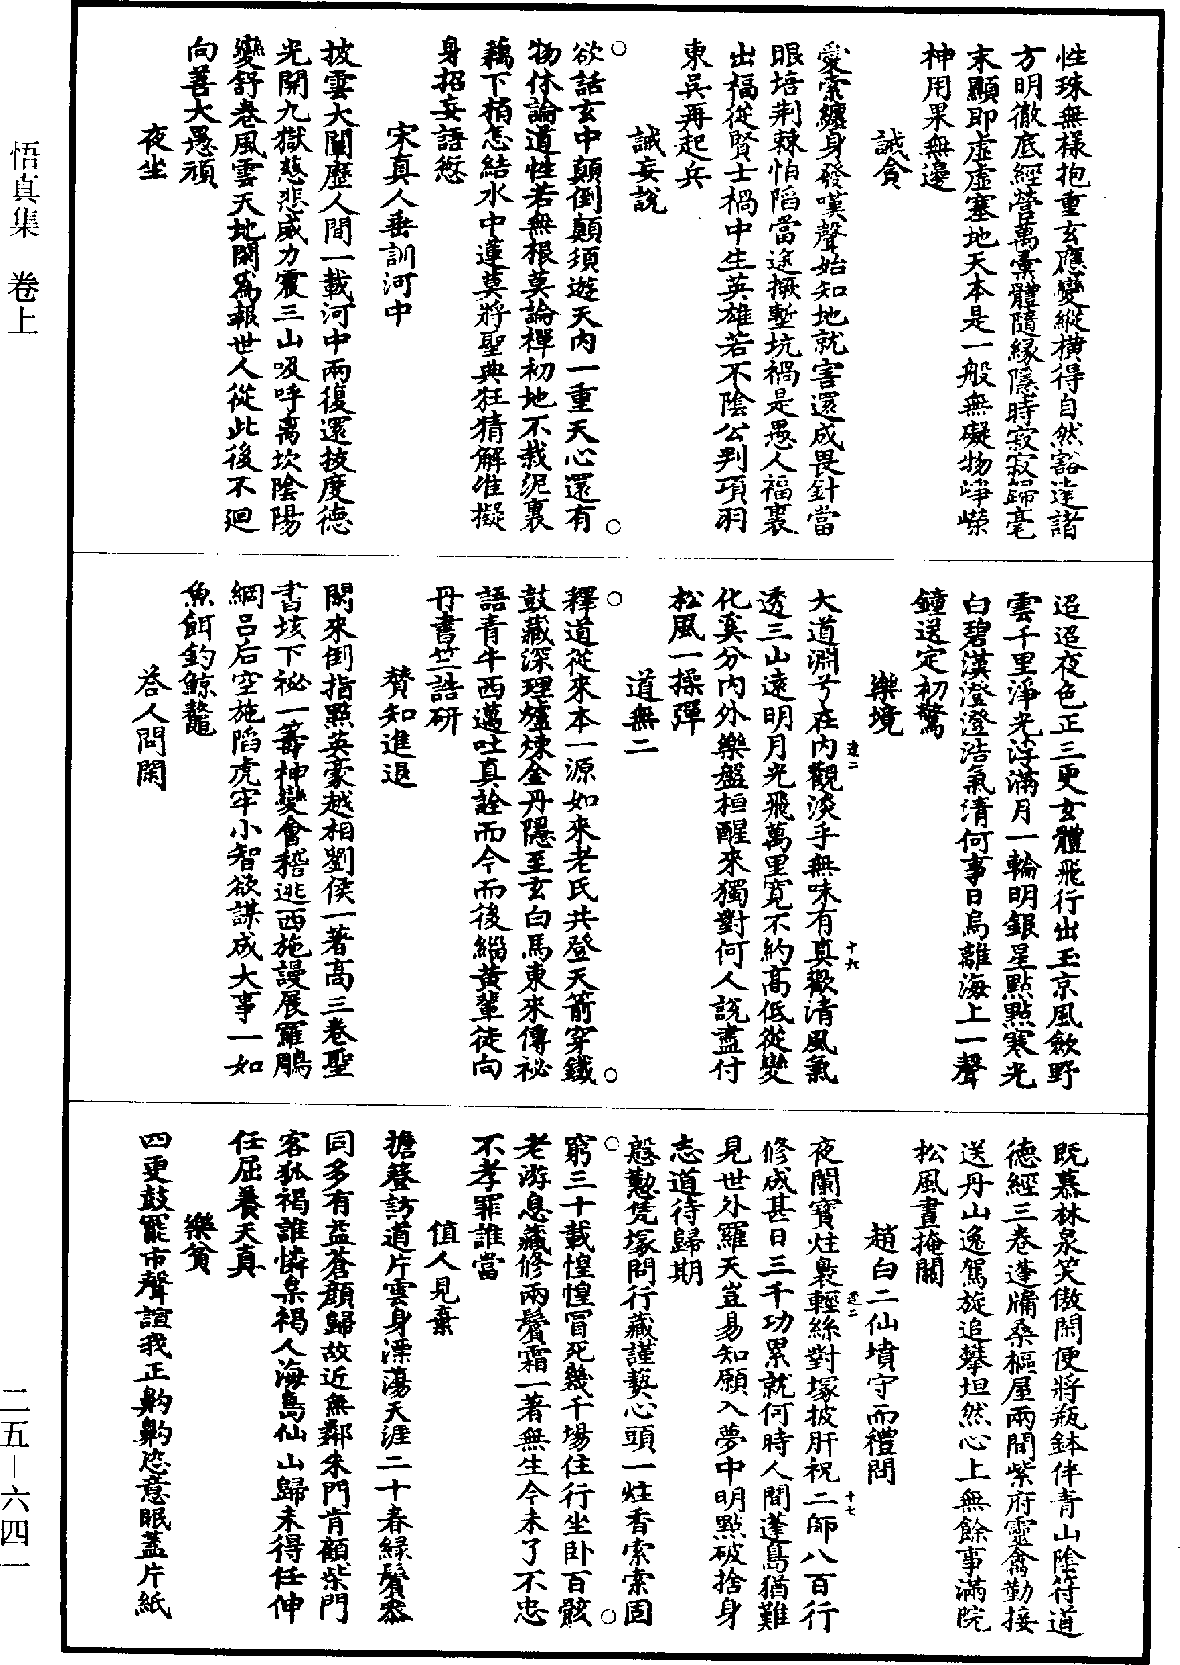 性珠無樣抱重玄應變縱橫得自然豁達諸
方明徹底經營萬彙體隨緣隱時寂寂歸毫
末顯即虛虛塞地天本是一般無礙物崢嶸
神用果無邊
誡貪
愛索纏身發嘆聲始知地就害還成畏針當
眼培荆棘怕陷當途撅塹坑禍是愚人福裏
出福從賢士禍中生英雄若不陰公判項羽
東吳再起兵
誡妄說
○
欲話玄中顛倒顛須遊天內一重天心還有
物休論道性若無根莫論禪初地不栽泥裏
藕下栢怎結水中蓮莫將聖典狂猜解准擬
身招妄語愆
○
宋真人垂訓河中
披雲大闡歷人間一載河中兩復還技度德
光開九獄慈悲威力震三山吸呼离坎陰陽
變舒卷風雲天地關為報世人從此後不廻
向善大愚頑
夜坐
迢迢夜色正三更玄體飛行出玉京風歛野
雲千里淨光浮滿月一輪明銀星點點寒光
白碧漢澄澄浩氣清何事日烏離海上一聲
鐘送定初驚
樂境
大道淵兮在內觀淡乎無味有真歡清風氣
透三山遠明月光飛萬里寬不約高低從變
化奚分內外樂盤桓醒來獨對何人說盡付
松風一操彈
道無二
○
釋道從來本一源如來老氏共登天箭穿鐵
鼓藏深理爐煉金丹隱至玄白馬東來傳祕
語青牛西邁吐真詮而今而後緇黃輩徒向
丹書竺誥研
○
贊知進退
閑來倒指點英豪越相劉侯一著高三卷聖
書垓下祕一籌神變會稽逃西施謾展羅鵬
網呂后空施陷虎牢小智欲謀成大事一如
魚餌釣鯨鼇
答人問閑
既慕林泉笑傲閑便將瓶鉢伴青山陰符道
德經三卷蓬牖桑樞屋兩間紫府靈禽勤接
送丹山逸駕旋追攀坦然心上無餘事滿院
松風晝掩關
趙白二仙墳守而禮問
夜闌寶炷裊輕絲對塚披肝祝二師八百行
修成甚日三千功累就何時人間蓬島猶難
見世外羅天豈易知願入夢中明點破捨身
志道待歸期
慇懃凭塚問行藏謹爇心頭一炷香索索固
○
窮三十載惶惶冒死幾千場住行坐卧百骸
老游息藏修兩鬢霜一著無生今未了不忠
不孝罪誰當
○
值人見棄
擔簦訪道片雲身漂蕩天涯二十春綠鬢叅
同多有益蒼顏歸故近無鄰朱門肯顧柴門
客狐褐誰憐枲褐人海島仙山歸未得任伸
任屈養天真
樂貧
四更鼓罷市聲諠我正齁齁恣意眠蓋片紙
悟真集　卷上
二五－六四一